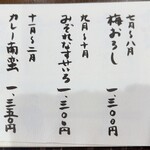 七月〜八月
梅おろし
一、三〇〇円
九月〜十月
みぞれなすせいろ
一、三〇〇円
十一月〜二月
カレー南蛮
一、三五〇円